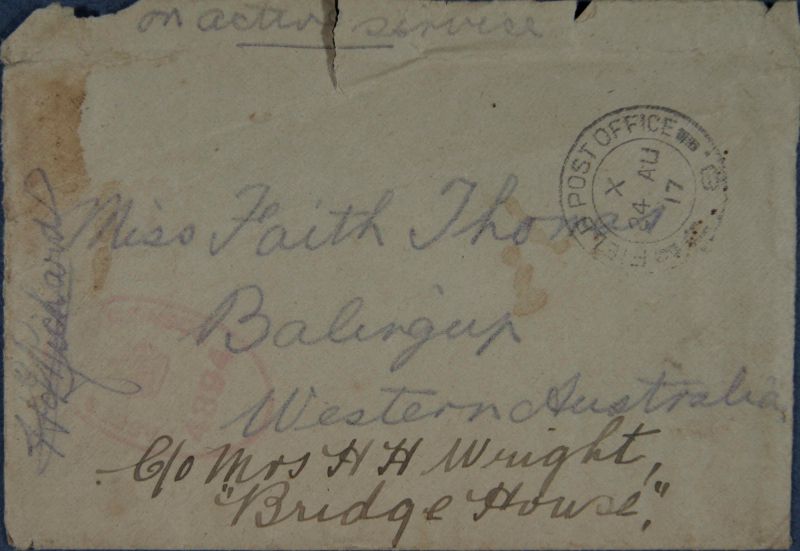 on active service
FIELD POST OFFICE
X
24 AU
17
Miss Faith Thomas
Balingup
Western Australia
C/o Mrs H H Wright,
"Bridge House".
4394